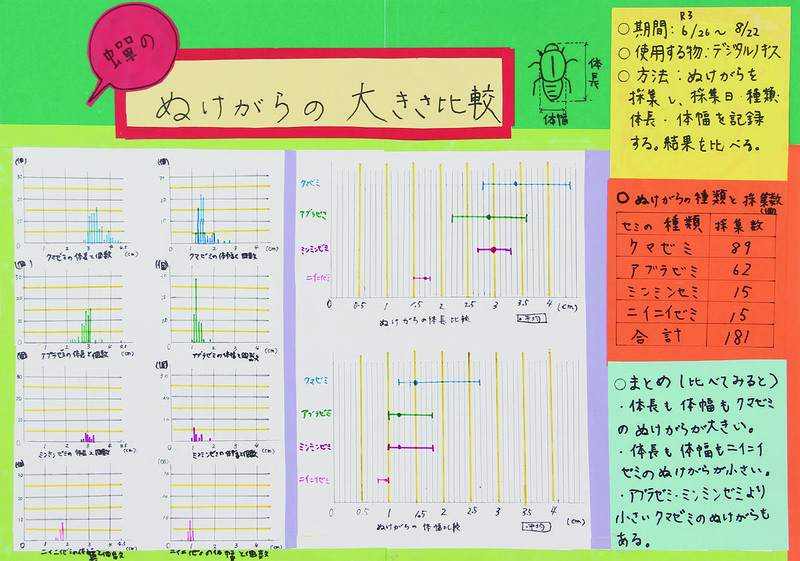 蟬の
ぬけがらの大きさ比較
体長
体幅
R3
○期間:6/26~8/22
○使用する物:デジタルノギス
○方法:ぬけがらを
採集し、採集日・種類・
体長・体幅を記録
する。結果を比べる。
クマゼミの体長と個数
クマゼミの体幅と個数
アブラゼミの体長と個数
アブラゼミの体幅と個数
ミンミンゼミの体長と個数
ミンミンゼミの体幅と個数
ニイニイゼミの体長と個数
ニイニイゼミの体幅と個数
クマゼミ
アブラゼミ
ミンミンゼミ
ニイニイゼミ
0 0.5 1 1.5 2 2.5 3 3.5 4 (cm)
ぬけがらの体長比較
・平均
クマゼミ
アブラゼミ
ミンミンゼミ
ニイニイゼミ
0 0.5 1 1.5 2 2.5 3 3.5 4 (cm)
ぬけがらの体幅比較
・平均
○ぬけがらの種類と採集数
(個)
セミの種類 採集数
クマゼミ 89
アブラゼミ 62
ミンミンゼミ 15
ニイニイゼミ 15
合計 181
○まとめ(比べてみると)
・体長も体幅もクマゼミ
のぬけがらが大きい。
・体長も体幅もニイニイ
ゼミのぬけがらが小さい。
・アブラゼミ・ミンミンゼミより
小さいクマゼミのぬけがらも
ある。